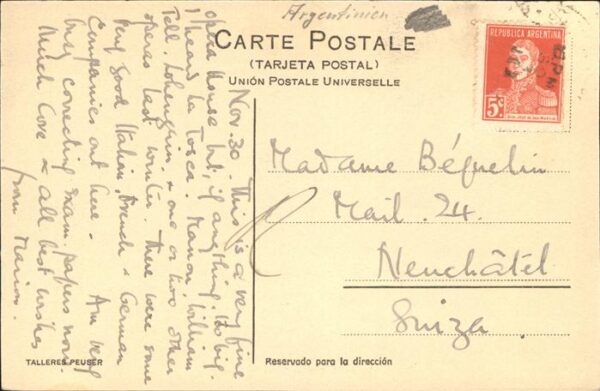 Argentinien
CARTE POSTALE
(TARJETA POSTAL)
UNIÓN POSTALE UNIVERSELLE
REPUBLICA ARGENTINA
5c
Nov. 30. This is a very fine
opera house but, if anything, too big.
I heard La Tosca, Manon, William
Tell, Lohengrin, & one or two other
operas last winter. There were some
very good Italian, French & German
Companies out here. Am very
busy correcting exam. papers now.
Much love & all best wishes
from Marion.
Madame Béguelin
Mail. 24.
Neuchâtel
Suiza.
TALLERES PEUSER
Reservado para la dirección